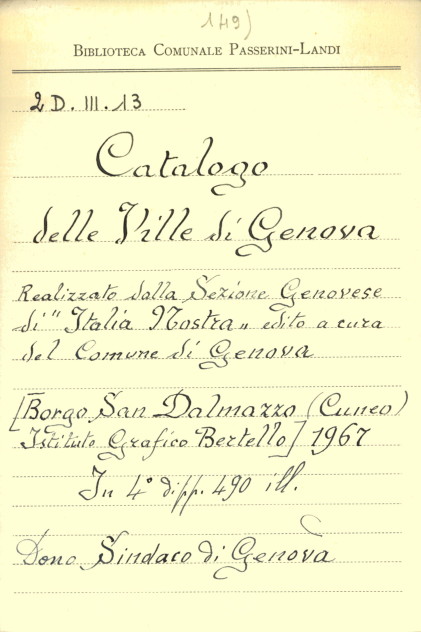 149)
BIBLIOTECA COMUNALE PASSERINI-LANDI
2 D. III. 13
Catalogo
delle Ville di Genova
Realizzato dalla Sezione Genovese
di "Italia Nostra" edito a cura
del Comune di Genova
[Borgo San Dalmazzo (Cuneo)
Istituto Grafico Bertello] 1967
In 4° di pp. 490 ill.
Dono Sindaco di Genova